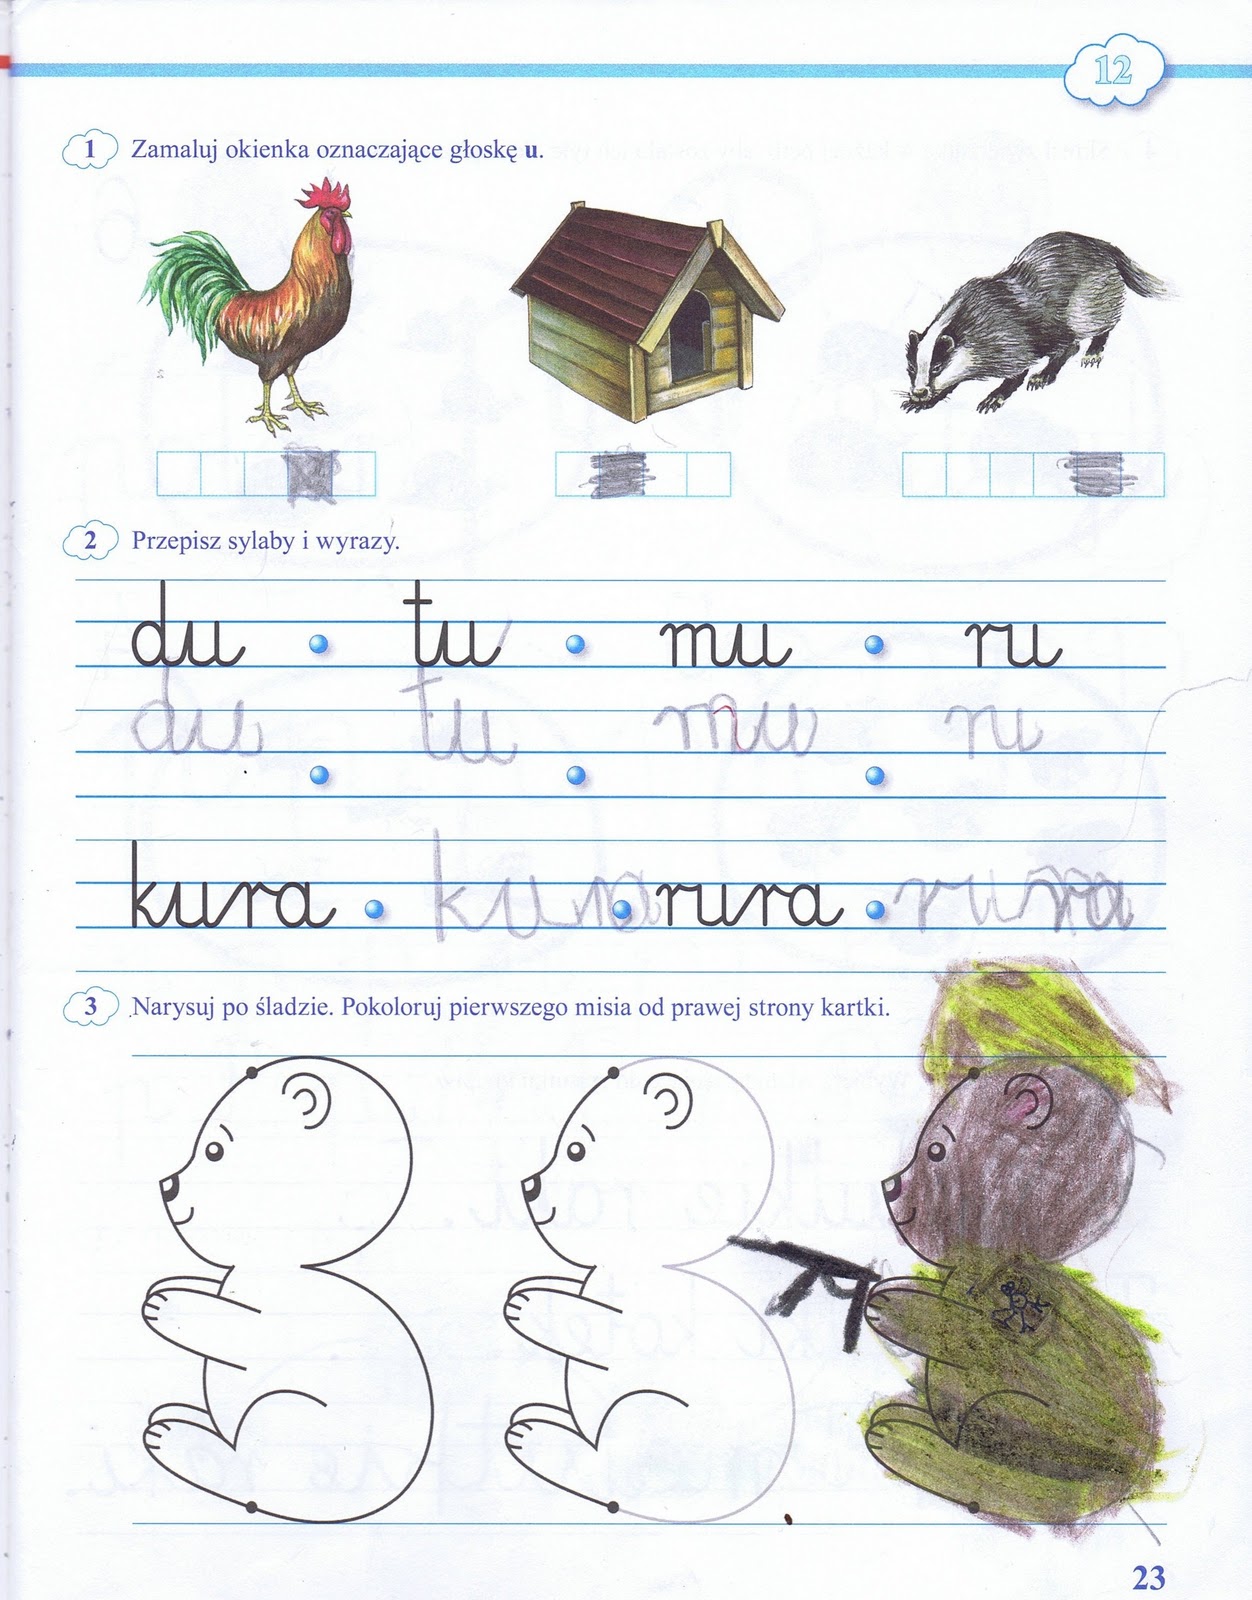 12
1 Zamaluj okienka oznaczające głoskę u.
2 Przepisz sylaby i wyrazy.
du tu mu ru
du tu mu ru
kura kura rura rura
3 Narysuj po śladzie. Pokoloruj pierwszego misia od prawej strony kartki.
23